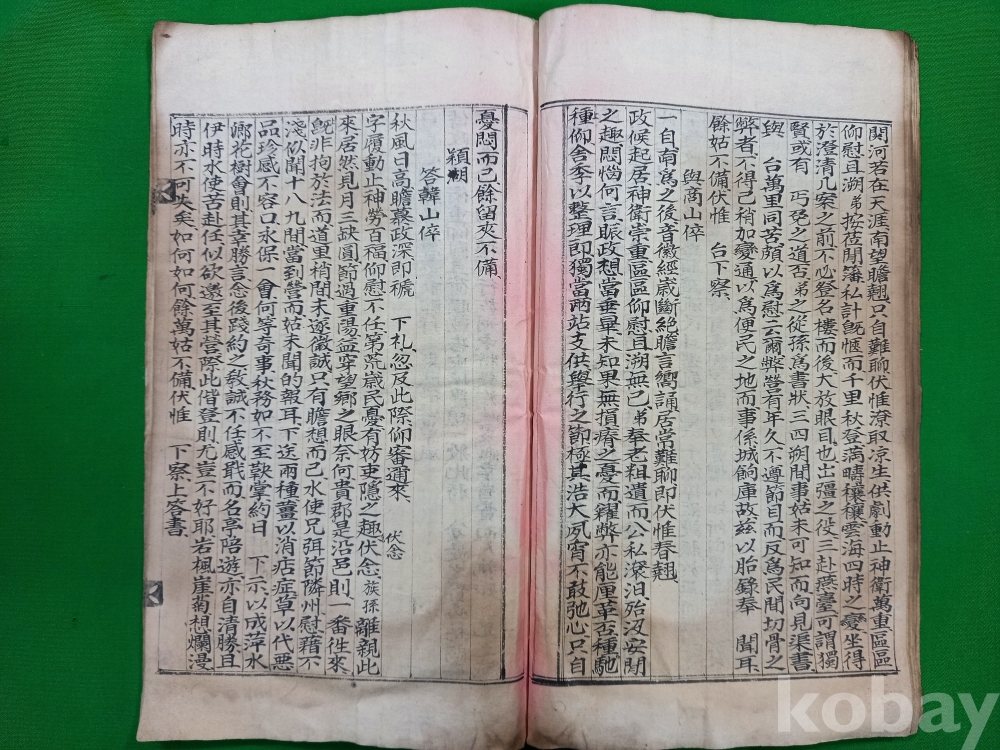 関河若在天涯南望瞻翹只自難聊伏惟潦収凉生供劇動止神衛萬重區區
仰慰且溯弟按莅関藩私計旣愜而千里秋登滿疇穰穰雲海四時之變坐得
於澄清几案之前不必登名樓而後大放眼目也出彊之役三赴燕臺可謂獨
賢或有 丐免之道否弟之從孫爲書狀三四朔間事姑未可知而向見渠書
與 台萬里同苦頗以爲慰云爾弊營有年久不遵節目而反爲民間切骨之
弊者不得已稍加變通以爲便民之地而事係城餉庫故玆以胎錄奉 聞耳
餘姑不備伏惟 台下察
與商山倅
一自南爲之後音徽經歲斷絶瞻言嚮誦居常難聊即伏惟春翹
政候起居神衛崇重區區仰慰且溯無已弟奉老粗遣而公私滚汨殆沒安閒
之趣悶惱何言賑政想當垂畢未知果無損瘠之憂而鐸弊亦能厘革否種馳
種仰舍季以整理即獨當兩站支供擧行之節極其浩大夙宵不敢弛心只自
憂悶而已餘留夾不備
穎湖
答韓山倅
秋風日高瞻慕政深即穪 下札忽及此際仰審通來
字履動止神勞百福仰慰不任第荒歲民憂有妨吏隱之趣伏念族孫離親此
伏念
來居然見月三缺圓節過重陽益穿望鄉之眼奈何貴郡是沿邑則一番徃來
旣非拘於法而道里稍間未遂微誠只有瞻想而已水使兄弭節隣州慰藉不
淺似聞十八九間當到營而姑未聞的報耳下送兩種薑以消痁症草以代悪
品珍感不容口永保一會何等奇事秋務如不至鞅掌約日 下示以成萍水
鄉花樹會則其幸勝言念後踐約之敎誠不任感戢而名亭陪遊亦自清勝且
伊時水使苦赴任似欲邀至其營際此偕登則尤豈不好耶岩楓崖菊想爛漫
時亦不可失矣如何如何餘萬姑不備伏惟 下察上答書
kobay